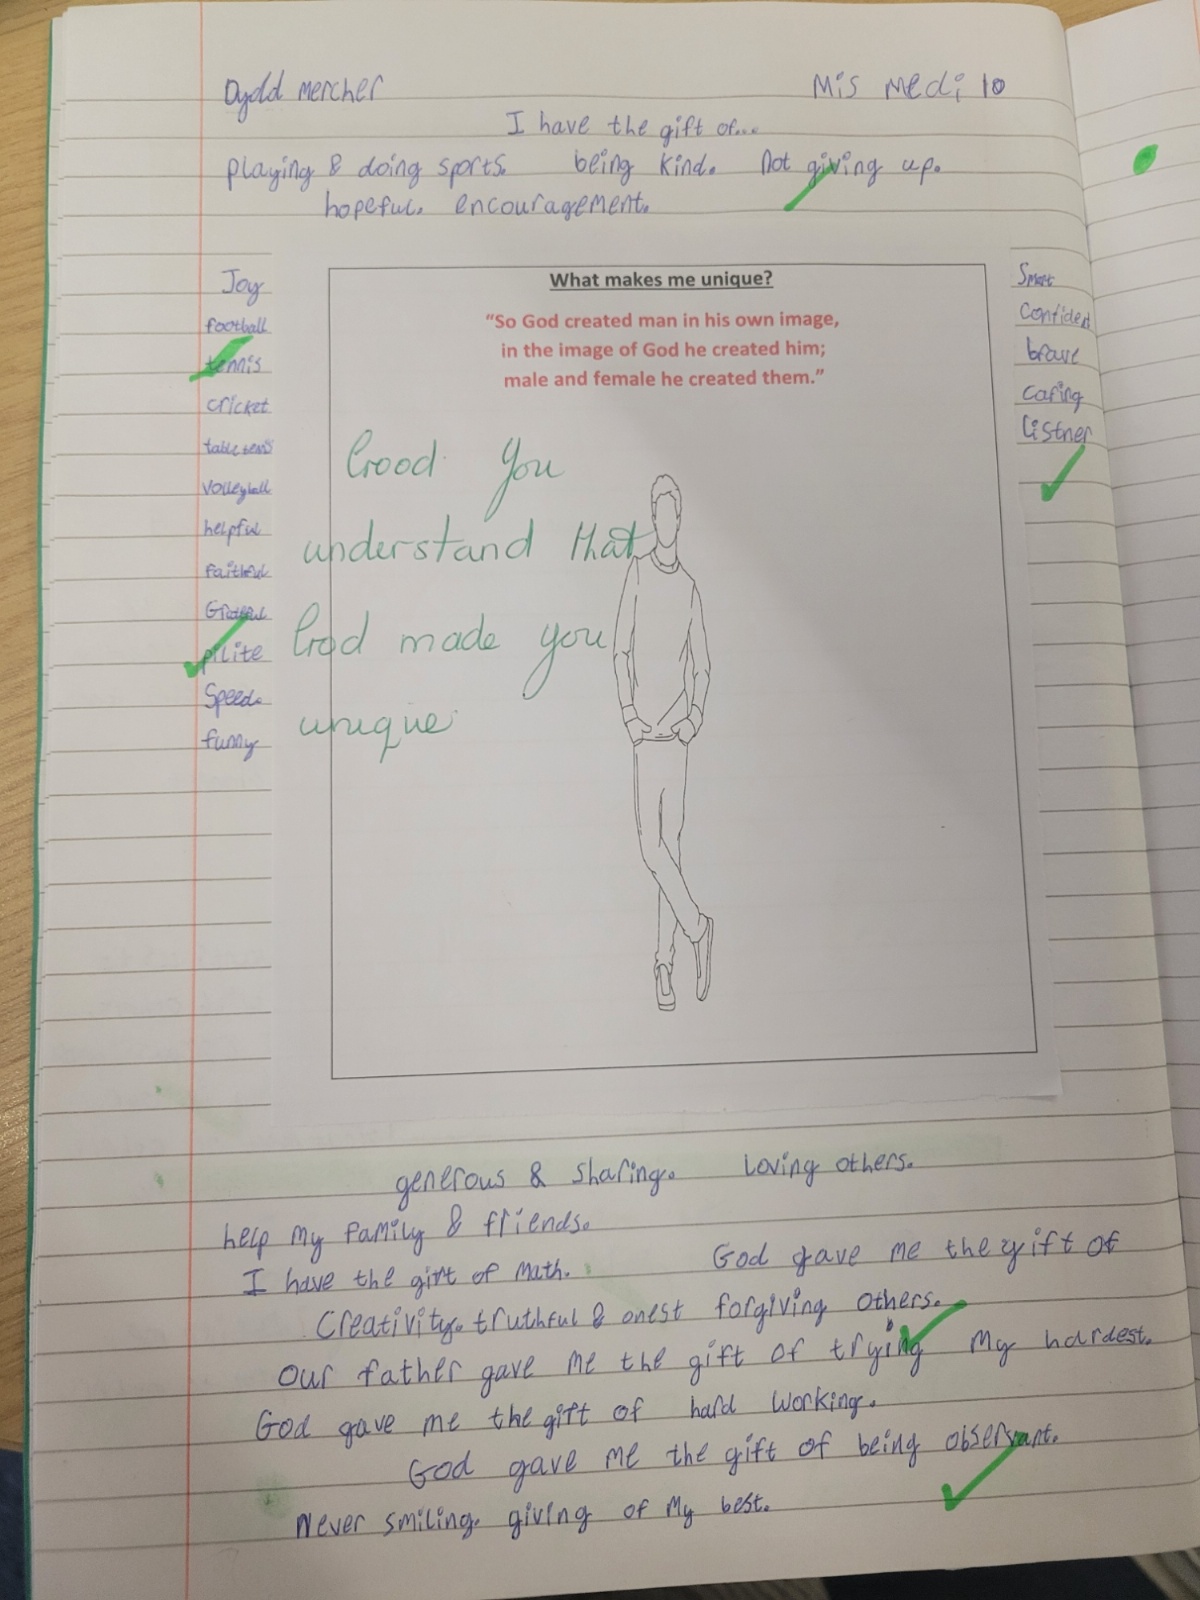 Dydd Mercher
Mis Medi 10
I have the gift of...
playing & doing sports. being kind. Not giving up.
hopeful. encouragement.
Joy
football
tennis
cricket
table tennis
Volleyball
helpful
Faithful
Grateful
pilite
Speed.
funny
What makes me unique?
"So God created man in his own image,
in the image of God he created him;
male and female he created them."
Smart
Confident
brave
caring
Listner
Good you
understand that
God made you
unique
generous & sharing. Loving others.
help my family & friends.
I have the gift of math. God gave me the gift of
Creativity. truthful & onest forgiving others.
Our father gave me the gift of trying my hardest.
God gave me the gift of hard working.
God gave me the gift of being observant.
Never smiling. giving of my best.